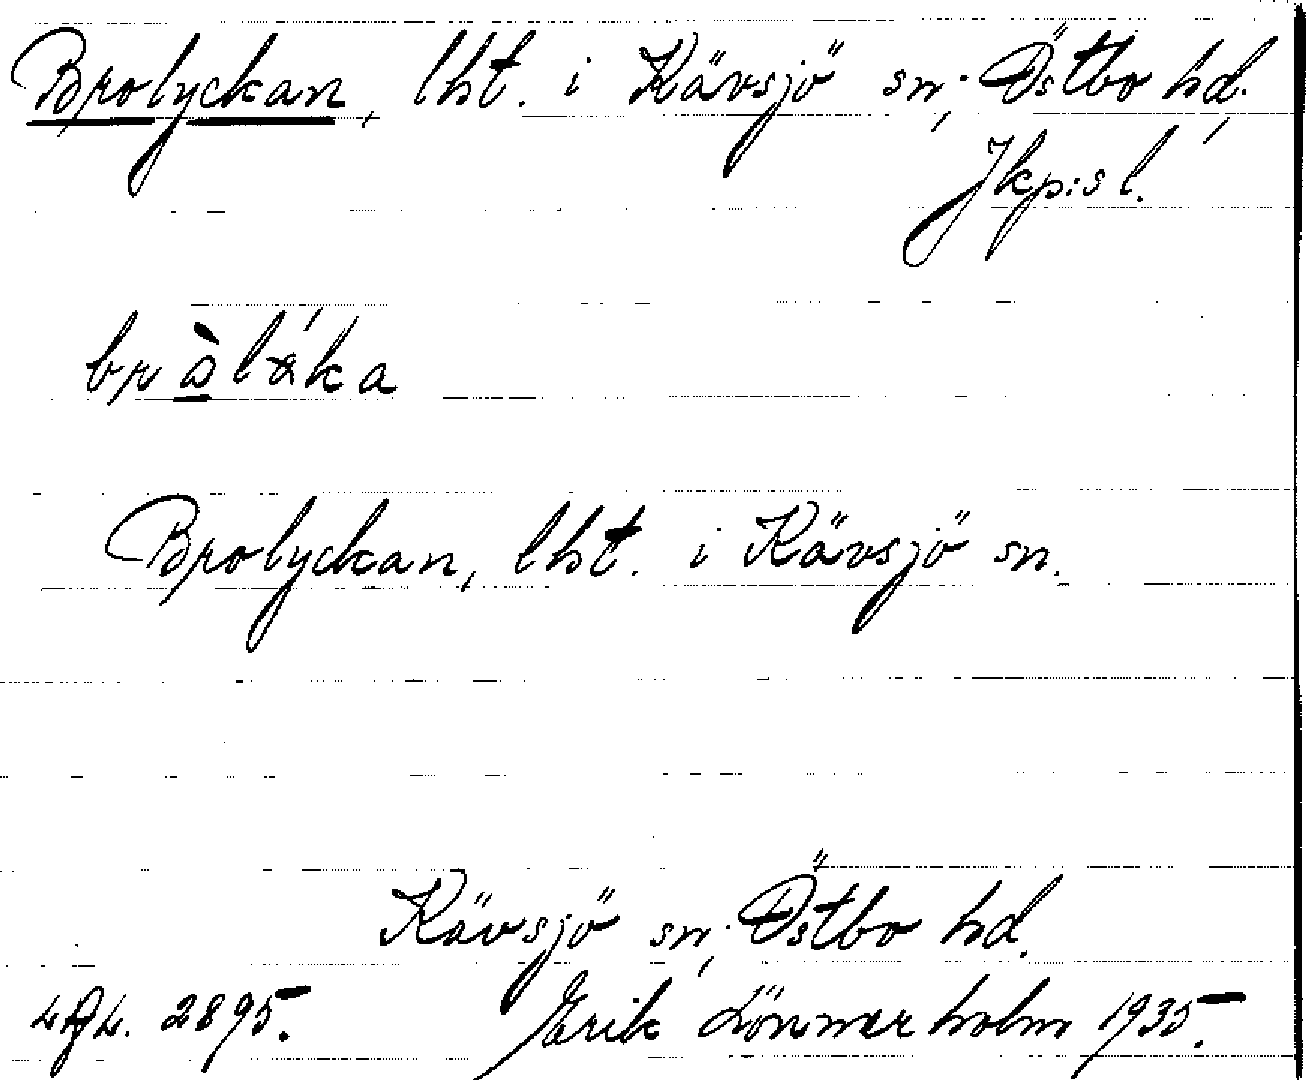 Brolyckan, lht. i Kävsjö sn, Östbo hd,
Jkp:s l.
Brolyckan, lht. i Kävsjö sn.
Kävsjö sn, Östbo hd.
2895. Erik Lönnerholm 1935.